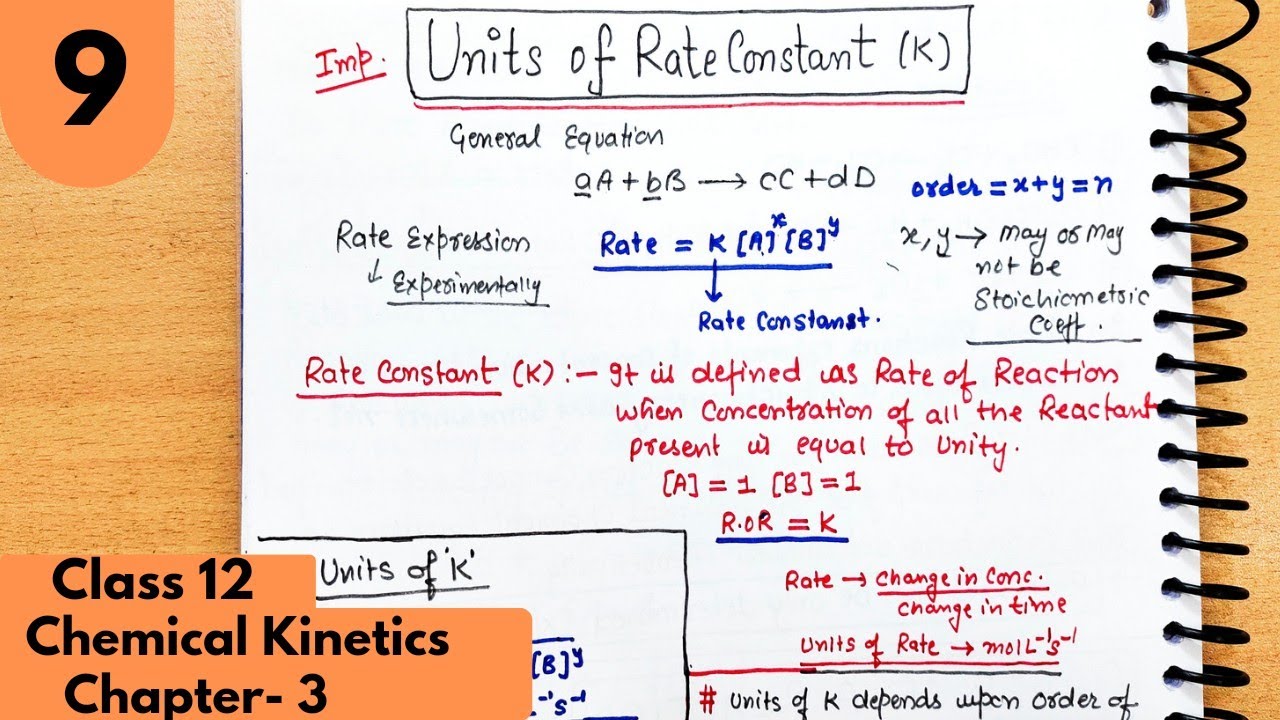 9
Imp. Units of Rate Constant (K)
General Equation
aA + bB → cC + dD
order = x+y = n
Rate Expression
↓ Experimentally
Rate = K [A]^x [B]^y
↓
Rate Constanst.
x, y → may or may
not be
Stoichiometric
Coeff.
Rate Constant (K) :- It is defined as Rate of Reaction
when Concentration of all the Reactant
present is equal to Unity.
[A] = 1 [B] = 1
R.OR = K
Rate → Change in Conc.
change in time
Units of Rate → mol L⁻¹s⁻¹
# Units of K depends upon order of
Units of 'K'
[B]^y
L⁻¹s⁻¹
Class 12
Chemical Kinetics
Chapter- 3